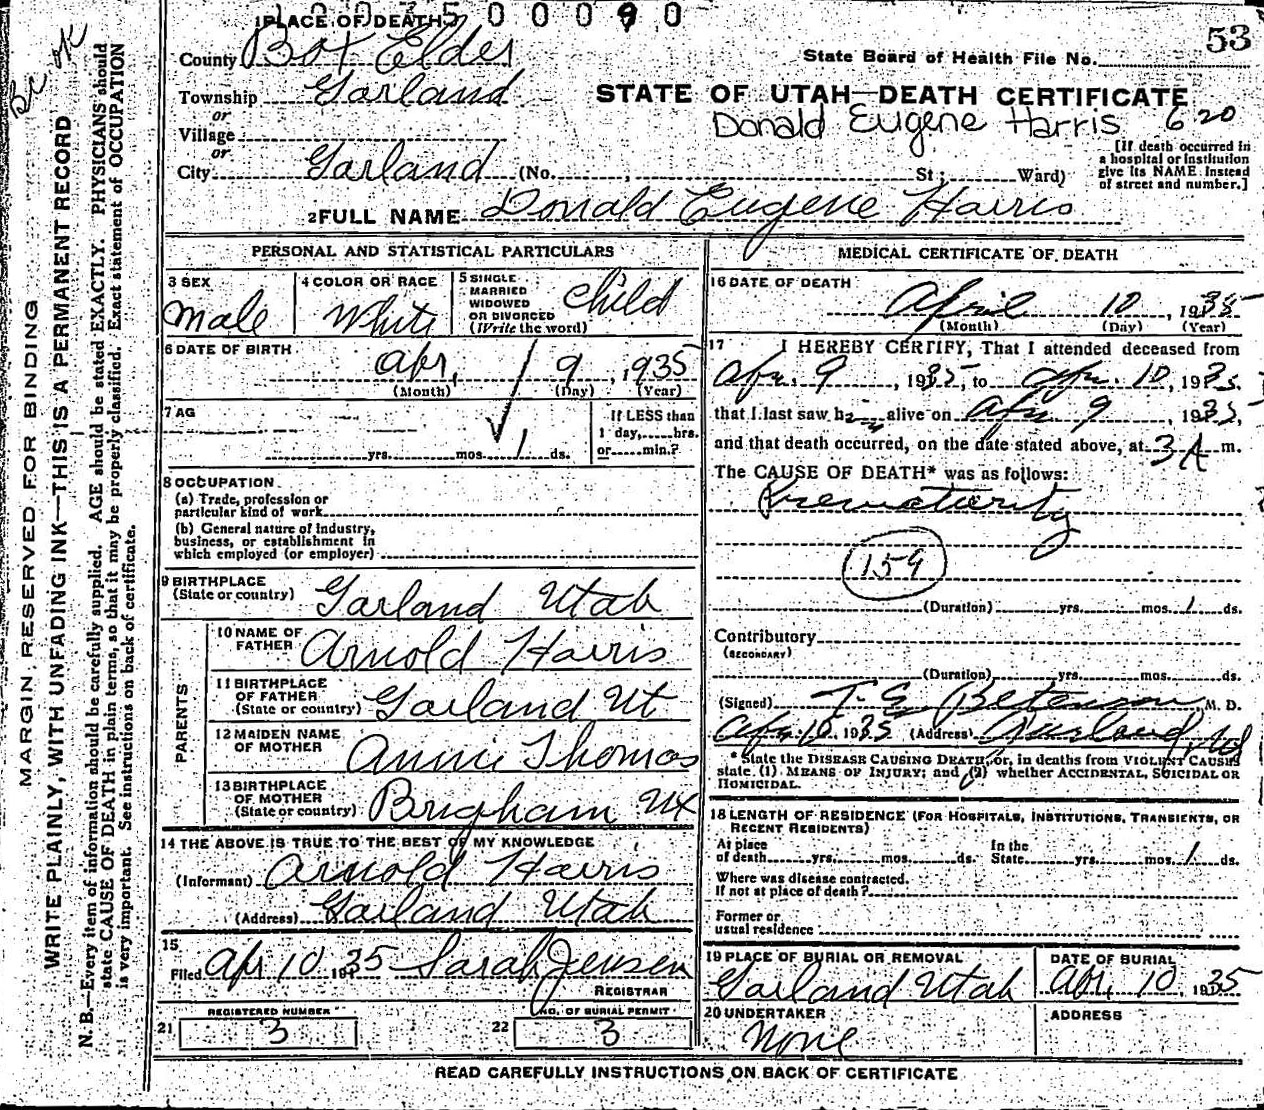 1 PLACE OF DEATH
0 0 3 5 0 0 0 9 0
53
County Box Elder
State Board of Health File No.
Township Garland
or
STATE OF UTAH—DEATH CERTIFICATE
Village
Donald Eugene Harris 620
or
City Garland (No. , St; Ward)
[If death occurred in
a hospital or institution
give its NAME instead
of street and number.]
2 FULL NAME Donald Eugene Harris
PERSONAL AND STATISTICAL PARTICULARS
3 SEX
Male
4 COLOR OR RACE
White
5 SINGLE
MARRIED
WIDOWED
OR DIVORCED
(Write the word)
child
6 DATE OF BIRTH
Apr, 9, 1935
(Month) (Day) (Year)
7 AG
yrs. mos. 1 ds.
If LESS than
1 day, hrs.
or min.?
8 OCCUPATION
(a) Trade, profession or
particular kind of work
(b) General nature of Industry,
business, or establishment in
which employed (or employer)
9 BIRTHPLACE
(State or country) Garland Utah
PARENTS
10 NAME OF
FATHER Arnold Harris
11 BIRTHPLACE
OF FATHER
(State or country) Garland Ut
12 MAIDEN NAME
OF MOTHER Annie Thomas
13 BIRTHPLACE
OF MOTHER
(State or country) Brigham Ut
14 THE ABOVE IS TRUE TO THE BEST OF MY KNOWLEDGE
(Informant) Arnold Harris
(Address) Garland Utah
15
Filed Apr 10 1935 Sarah Jensen
REGISTRAR
REGISTERED NUMBER
21 3
NO. OF BURIAL PERMIT
22 3
MEDICAL CERTIFICATE OF DEATH
16 DATE OF DEATH
April 10, 1935
(Month) (Day) (Year)
17 I HEREBY CERTIFY, That I attended deceased from
Apr. 9, 1935, to Apr. 10, 1935.
that I last saw him alive on Apr 9, 1935,
and that death occurred, on the date stated above, at 3 A m.
The CAUSE OF DEATH* was as follows:
Prematurity
159
(Duration) yrs. mos. 1 ds.
Contributory
(SECONDARY)
(Duration) yrs. mos. ds.
(Signed) T. E. Betenson, M. D.
Apr. 10, 1935 (Address) Garland, Ut
* State the DISEASE CAUSING DEATH, or, in deaths from VIOLENT CAUSES
state (1) MEANS OF INJURY; and (2) whether ACCIDENTAL, SUICIDAL OR
HOMICIDAL.
18 LENGTH OF RESIDENCE (FOR HOSPITALS, INSTITUTIONS, TRANSIENTS, OR
RECENT RESIDENTS)
At place In the
of death yrs. mos. ds. State yrs. mos. 1 ds.
Where was disease contracted.
If not at place of death?
Former or
usual residence
19 PLACE OF BURIAL OR REMOVAL
Garland Utah
DATE OF BURIAL
Apr, 10, 1935
20 UNDERTAKER
None
ADDRESS
READ CAREFULLY INSTRUCTIONS ON BACK OF CERTIFICATE
MARGIN RESERVED FOR BINDING
WRITE PLAINLY, WITH UNFADING INK—THIS IS A PERMANENT RECORD
N. B.—Every item of information should be carefully supplied. AGE should be stated EXACTLY. PHYSICIANS should
state CAUSE OF DEATH in plain terms, so that it may be properly classified. Exact statement of OCCUPATION
is very important. See instructions on back of certificate.
OK